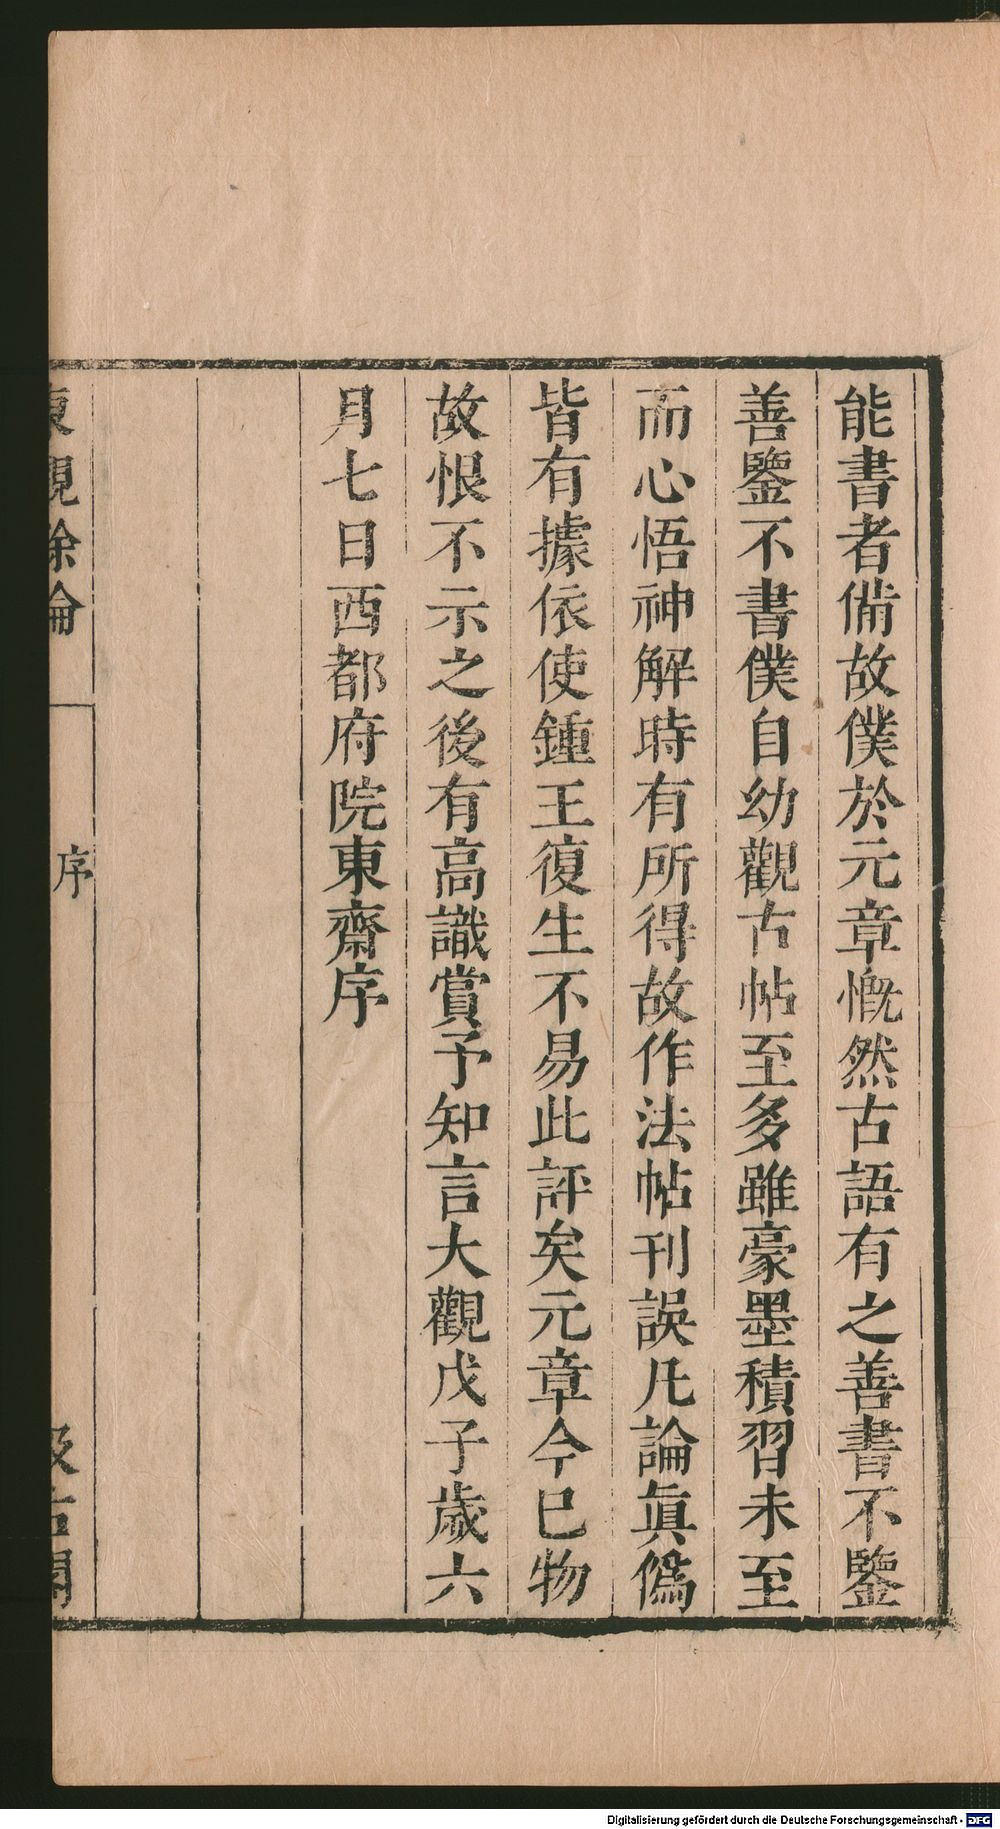 能書者備故僕於元章慨然古語有之善書不鑒
善鑒不書僕自幼觀古帖至多雖豪墨積習未至
而心悟神解時有所得故作法帖刊誤凡論眞僞
皆有據依使鍾王復生不易此評矣元章今已物
故恨不示之後有高識賞予知言大觀戊子歲六
月七日西都府院東齋序
東觀餘論
序
汲古閣
Digitalisierung gefördert durch die Deutsche Forschungsgemeinschaft - DFG